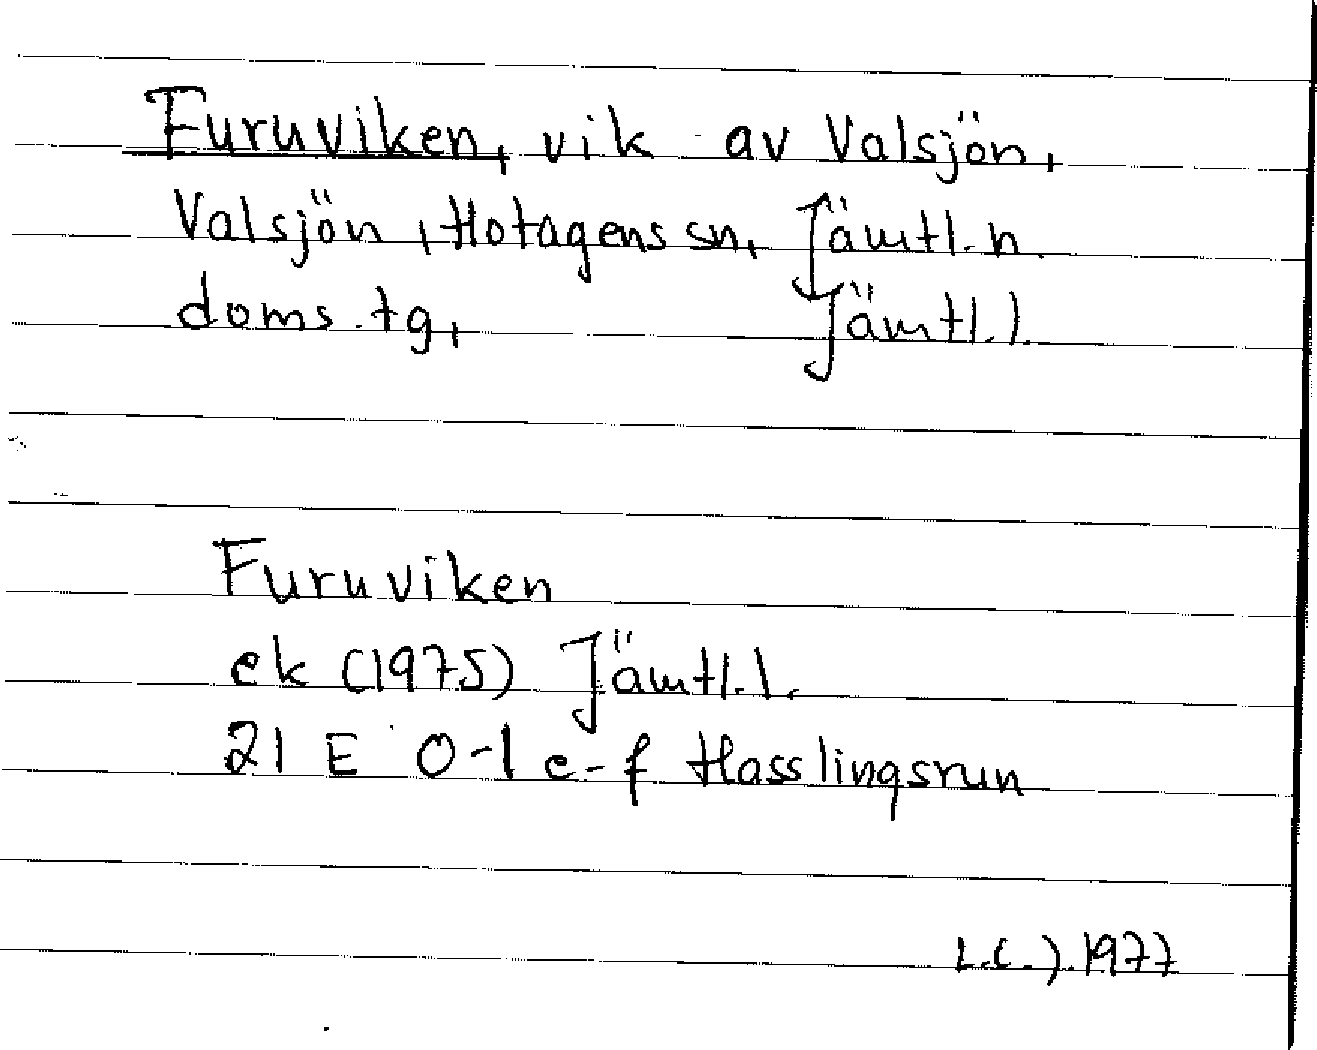 Furuviken, vik av Valsjön,
Valsjön, Hotagens sn, Jämtl. n.
doms. tg, Jämtl. l.
Furuviken
ek (1975) Jämtl. l.
21 E 0-1 e-f Hasslingsrun
L.C.J. 1977